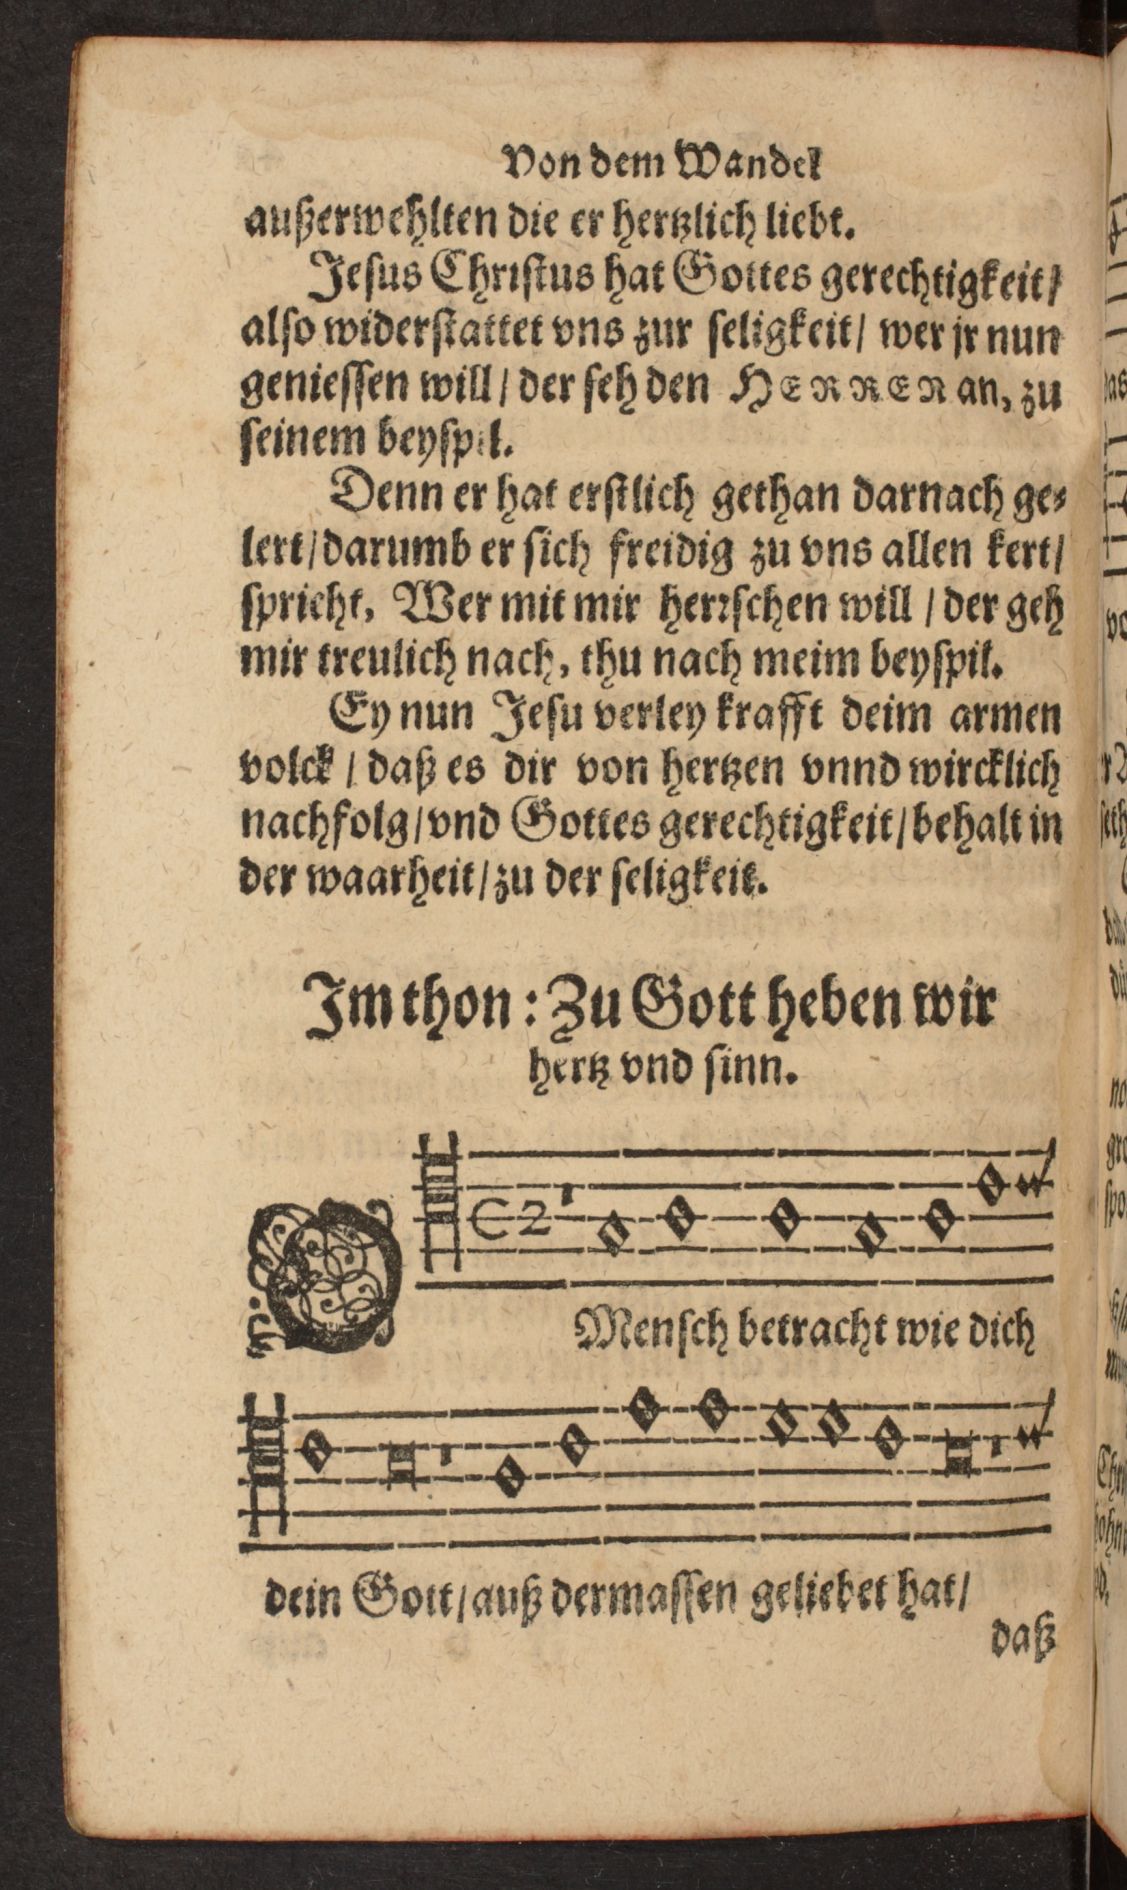 Von dem Wandel
außerwehlten die er hertzlich liebt.
Jesus Christus hat Gottes gerechtigkeit/
also widerstattet vns zur seligkeit/ wer jr nun
geniessen will/ der seh den HERREN an, zu
seinem beyspil.
Denn er hat erstlich gethan darnach ge⸗
lert/darumb er sich freidig zu vns allen kert/
spricht, Wer mit mir herrschen will / der geh
mir treulich nach, thu nach meim beyspil.
Ey nun Jesu verley krafft deim armen
volck / daß es dir von hertzen vnnd wircklich
nachfolg/vnd Gottes gerechtigkeit/behalt in
der waarheit/zu der seligkeit.
Im thon: Zu Gott heben wir
hertz vnd sinn.
C2
O
Mensch betracht wie dich
dein Gott/auß dermassen geliebet hat/
daß